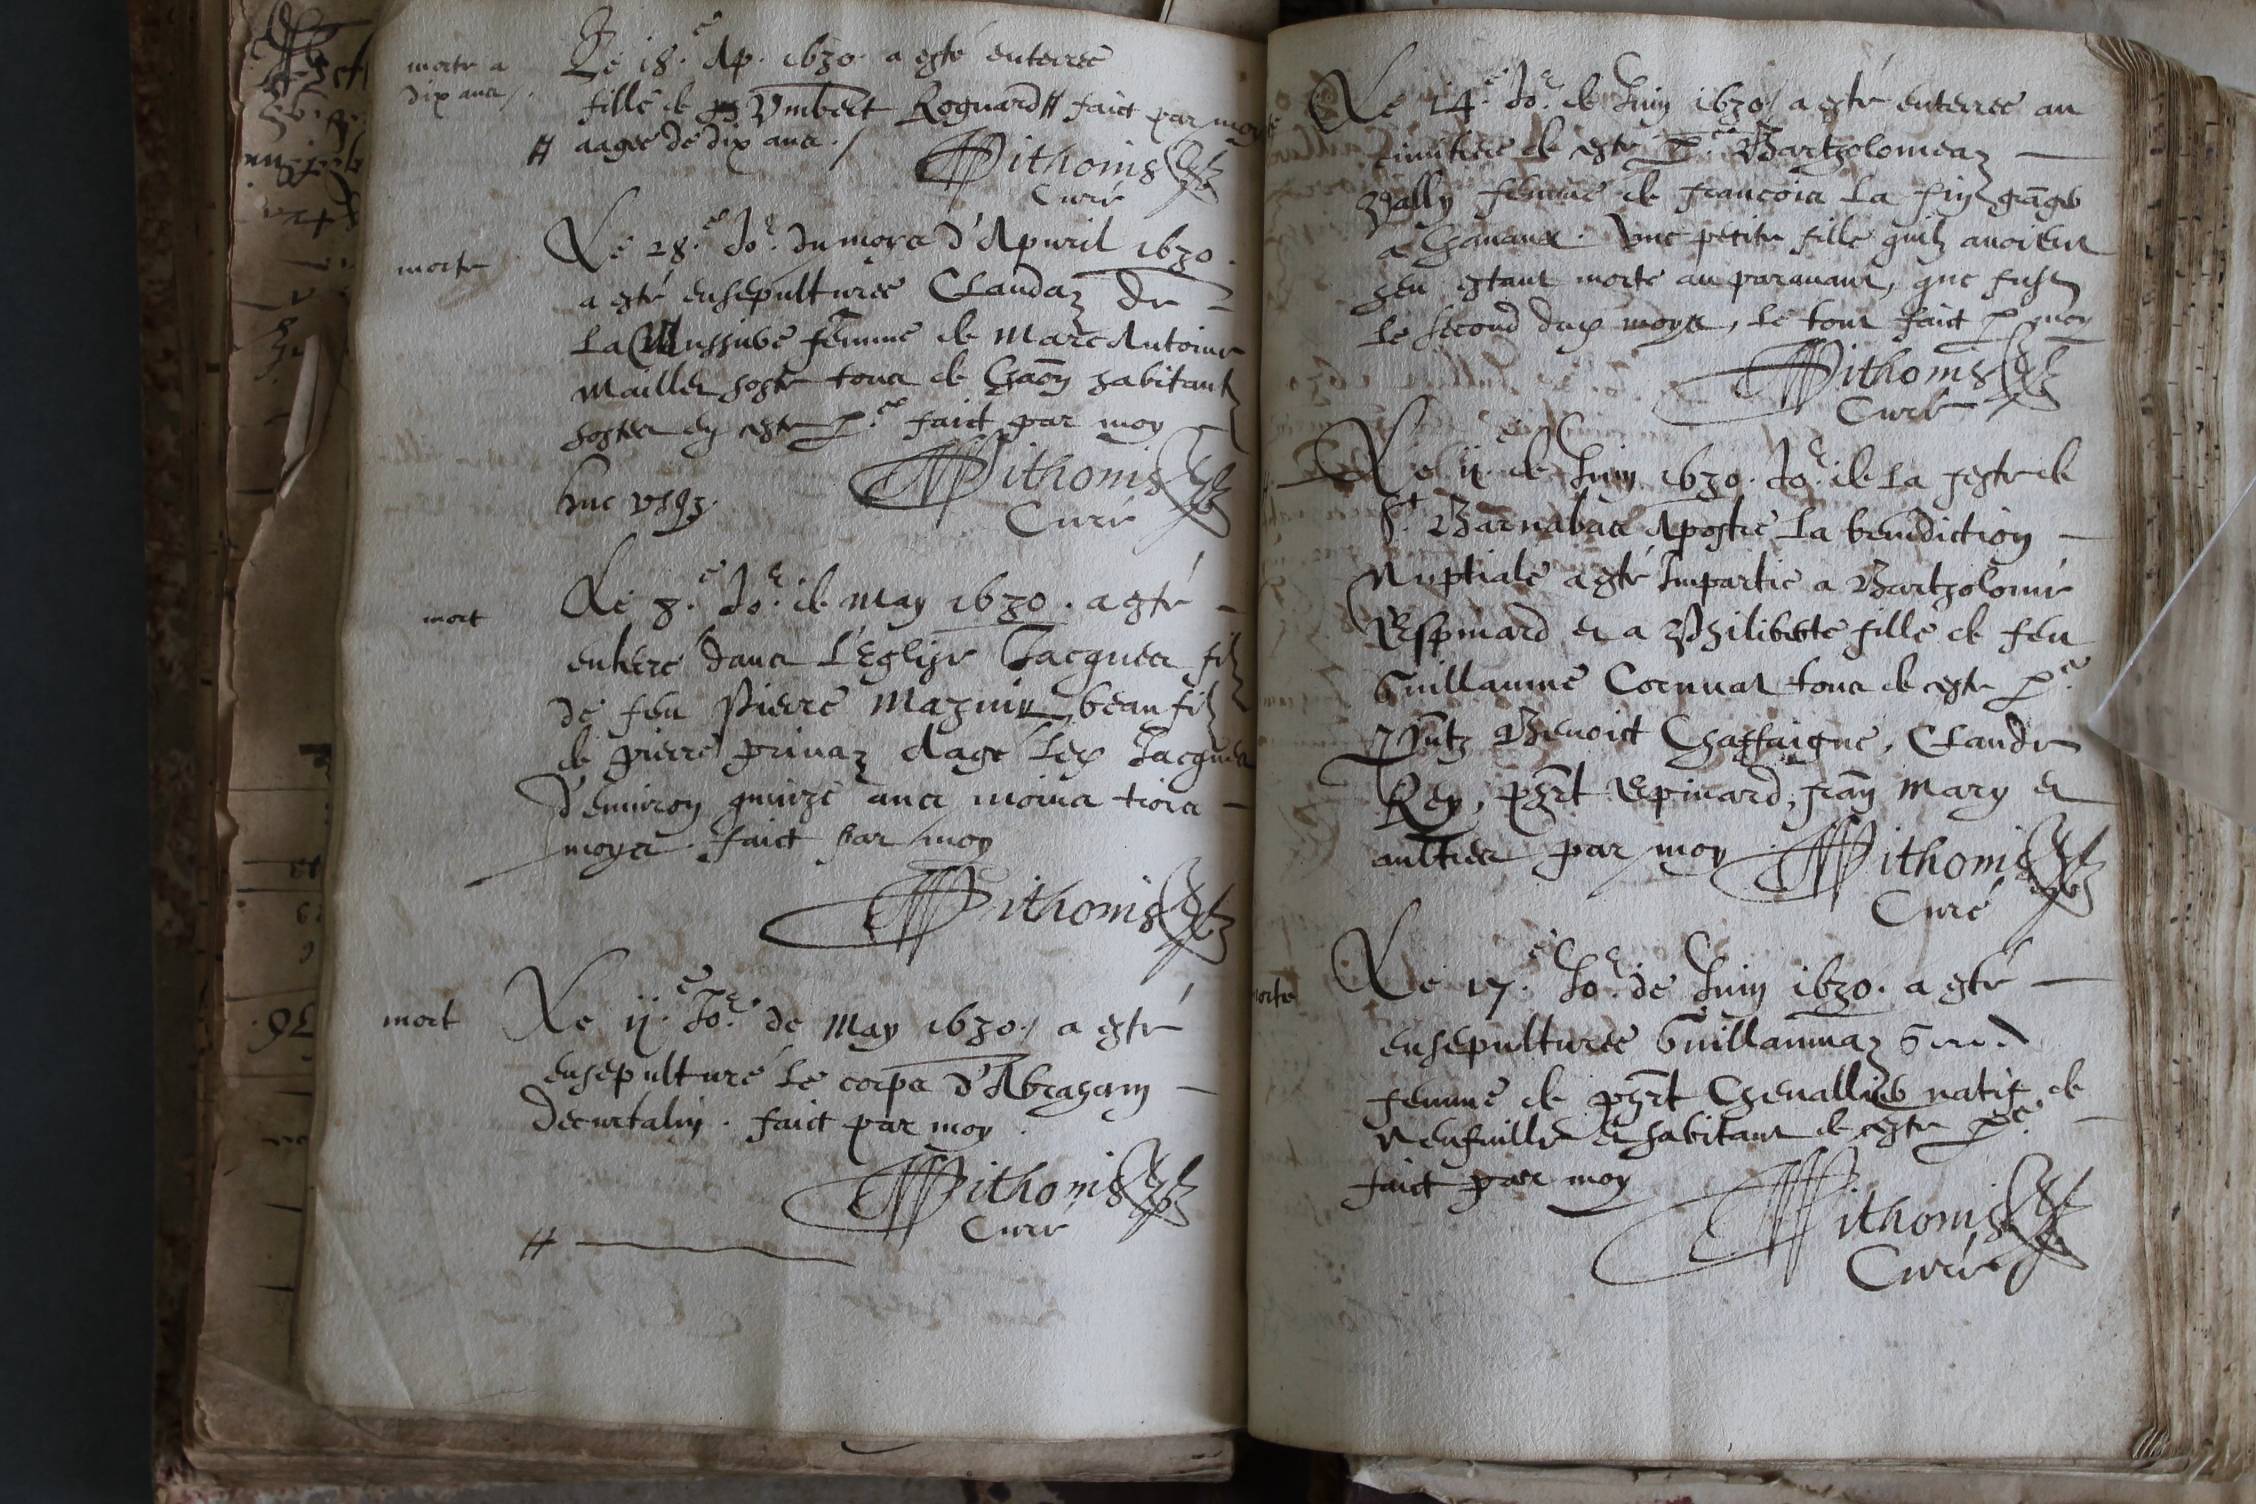 morte a
dix ans /.
Le 18.e Ap. 1630. a esté enterree
fille de Vmbert Roguard # faict par moy
# aagee de dix ans. /
Pithonis
Curé
morte
Le 28.e Jo.r du moys d'Apuril 1630.
a esté ensepulturee Claudaz De
La femme de Marc Antoine
Mailler hoste tous de habitant
hostes en ceste p.e faict par moy
Pithonis
huc vsq3.
Curé
mort
Le 8.e Jo.r de May 1630. a esté
enterré dans L'Eglise Jacques filz
de feu Pierre Magnin beau filz
de pierre priuaz Aagé led Jacques
d'enuiron quinze ans moins trois
moys. faict par moy
Pithonis
mort
Le ij.e Jo.r de May 1630. / a esté
ensepulturé le corps d'Abraham
Decurtalin. faict par moy.
Pithonis
Curé
#
Le 14.e Jo.r de Juin 1630 / a esté enterree au
cimitiere de ceste p.e Bartholomeaz
Vally femme de francois La fin
a Chanaux. Vne petite fille quilz auoient
heu estant morte au parauant, que fust
le second dud moys, le tout faict p moy
Pithonis
Curé
Le ij.e de Juin 1630. Jo.r de la feste de
St. Barnabas Apostre la benediction
Nuptiale a esté Impartie a Bartholomé
Espinard et a Philiberte fille de feu
Guillaume Cornuat tous de ceste p.e
Pñtz Benoict Chassaigne, Claude
Rey, phrt Epinard, fran Mary et
aultres par moy
Pithonis
Curé
morte
Le 17.e Jo.r de Juin 1630. a esté
ensepulturee Guillaumaz
femme de phrt Cheuallier natif de
Neufuille et habitant de ceste p.e
faict par moy
Pithonis
Curé